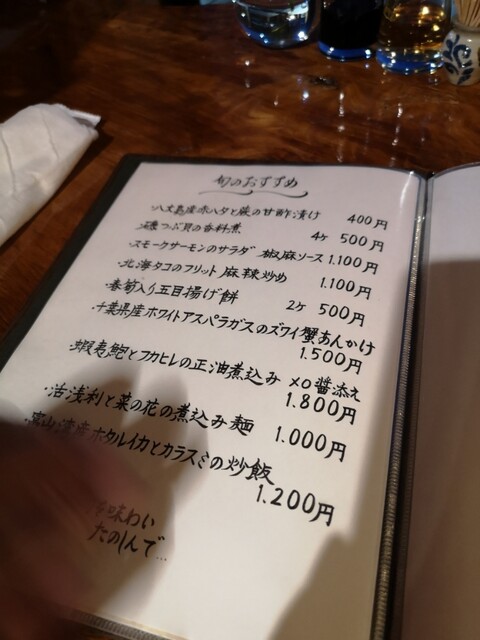 旬のおすすめ
・八丈島産赤ハタと蕨の甘酢漬け 400円
・磯つぶ貝の香料煮 4ヶ 500円
・スモークサーモンのサラダ 椒麻ソース 1.100円
・北海タコのフリット麻辣炒め 1.100円
・春筍入り五目揚げ餅 2ヶ 500円
・千葉県産ホワイトアスパラガスのズワイ蟹あんかけ
1.500円
・蝦夷鮑とフカヒレの正油煮込み XO醬添え
1.800円
・活浅利と菜の花の煮込み麺 1.000円
・富山湾産ホタルイカとカラスミの炒飯
1.200円
味わい
たのしんで…